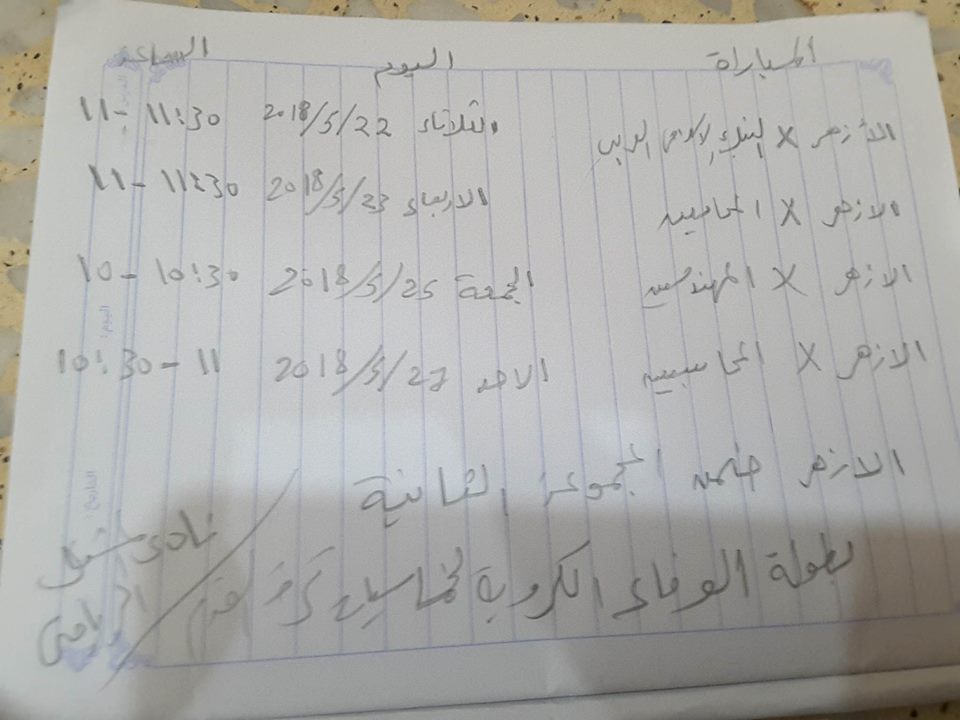 المباراة اليوم الساعة
الأزهر X البنك الإسلامي العربي الثلاثاء 2018/5/22 11-11:30
الازهر X المحاسبين الاربعاء 2018/5/23 11-11:30
الازهر X المهندسين الجمعة 2018/5/25 10-10:30
الازهر X المحاسبين الاحد 2018/5/27 10:30-11
الازهر ضمن المجموعة الثانية
بطولة الوفاء الكروية لخماسيات كرة القدم / نادي
الرياضي